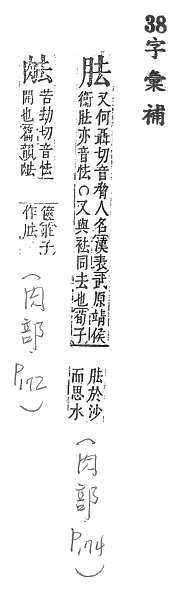 38字彙補
胠
又何聶切音脅人名漢表武原靖侯
衛胠亦音怯○又與袪同去也荀子
胠於沙
而思水
(肉部 P.174)
苦劫切音怯
開也舊韻
篋莊子
作胠
(肉部 P.172)